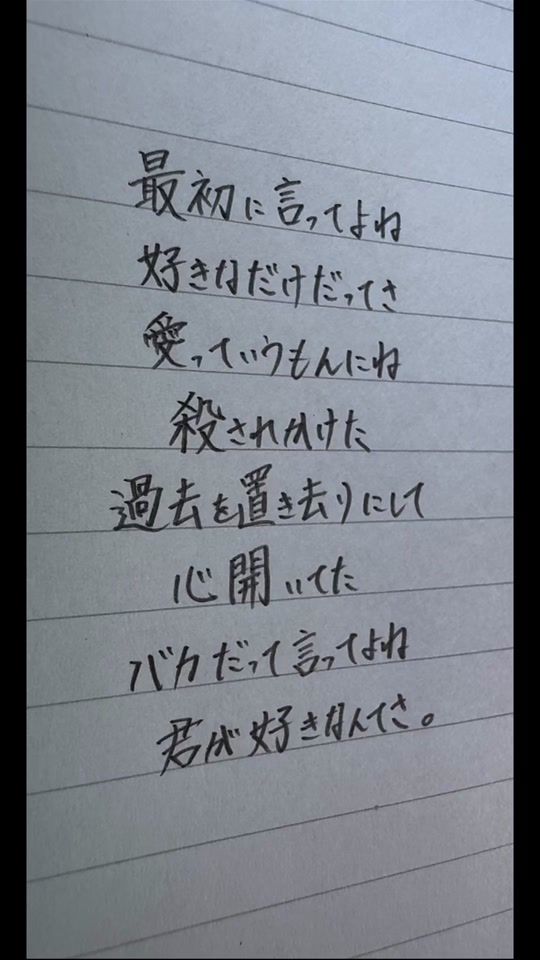 最初に言ってよね
好きなだけだってさ
愛っていうもんにね
殺されかけた
過去を置き去りにして
心開いてた
バカだって言ってよね
君が好きなんてさ。